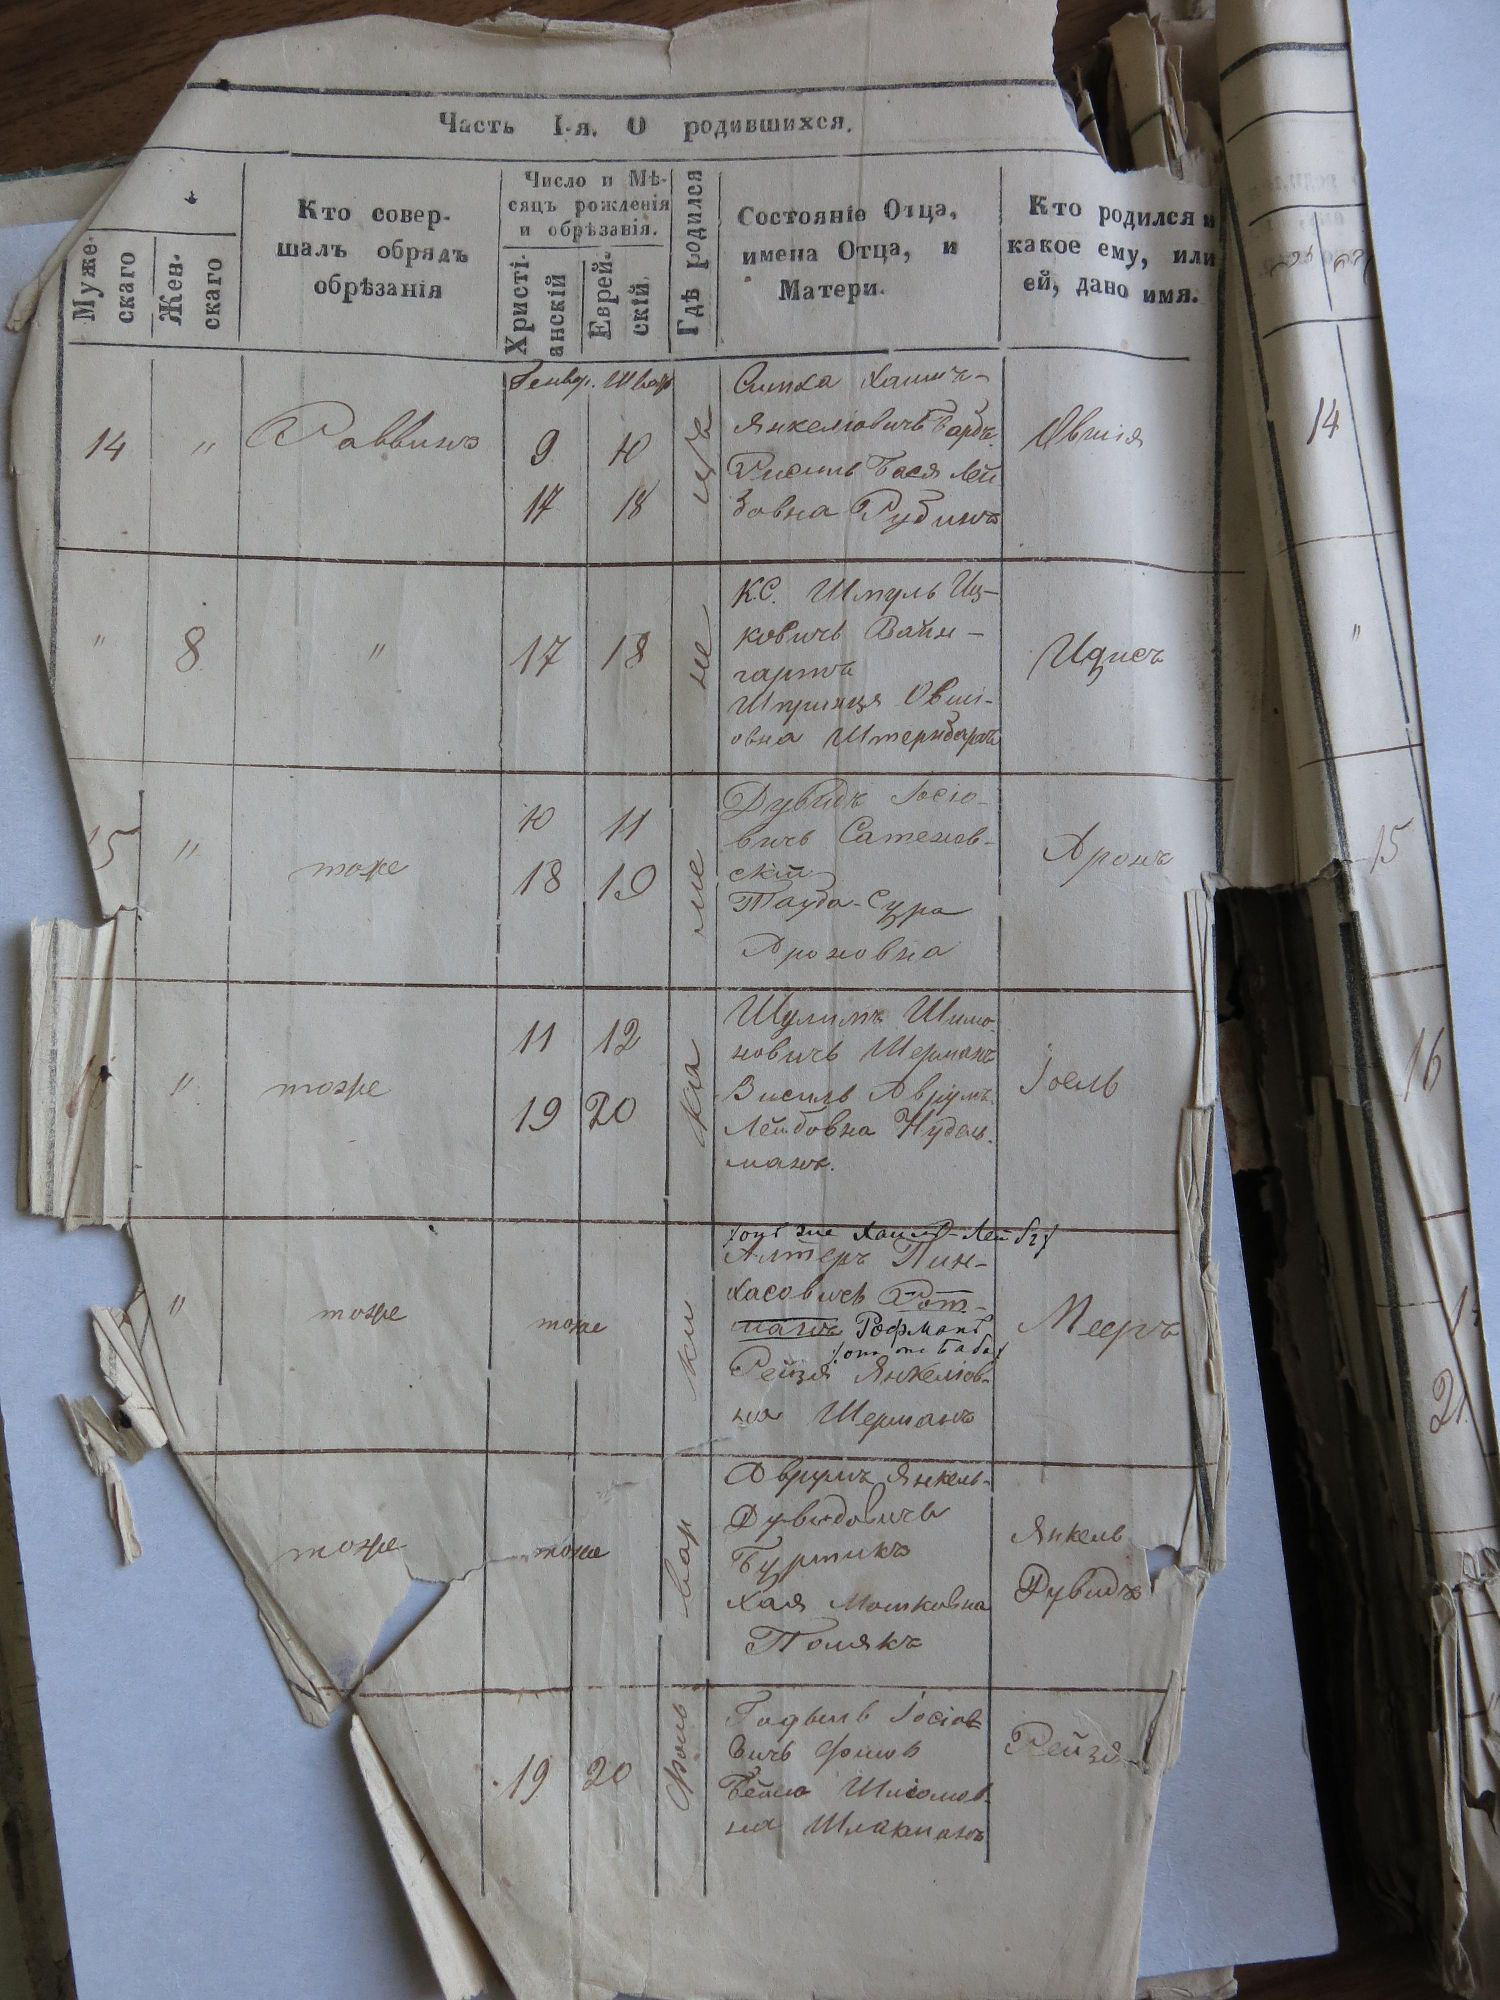 Часть I-я. О родившихся.
Мужескаго
Женскаго
Кто совершалъ обрядъ обрѣзанія
Число и Мѣсяцъ рожденія и обрѣзанія.
Христіанскій
Еврейскій.
Гдѣ родился
Состояніе Отца, имена Отца, и Матери.
Кто родился и какое ему, или ей, дано имя.
Генвр. Шват
14 " Раввинъ 9 10
17 18
Симха Хаимъ-
Янкелювичъ Барбъ
Рисиль Бася Лей
зовна Рубинъ
Овшія
14
" 8 " 17 18
К.С. Шмуль Иц-
ковичъ Вайн-
гартъ
Шпринця Овші-
овна Штернбергъ
Идисъ
"
15 " тоже
10 11
18 19
Дувидъ Іосіо-
вичъ Сатенов-
скій
Тауба-Сура
Ароновна
Аронъ
15
" тоже
11 12
19 20
Шулимъ Шимо-
новичъ Шерманъ
Висиль Аврумъ
Лейбовна Нудель-
манъ.
Іоель
16
" тоже тоже
/онъ же Хаимъ-Лейб/
Алтеръ Пин-
хасовичъ Рот-
манъ Рофманъ
/она же Баба/
Рейзя Янкеліов-
на Шерманъ
Мееръ
тоже тоже
Аврумъ Янкель-
Дувидовичъ
Буртикъ
Хая Мошковна
Полякъ
Янкель
Дувидъ
21
19 20
Іосіов-
вичъ
Шліомов-
на Шлакманъ
Рейзя